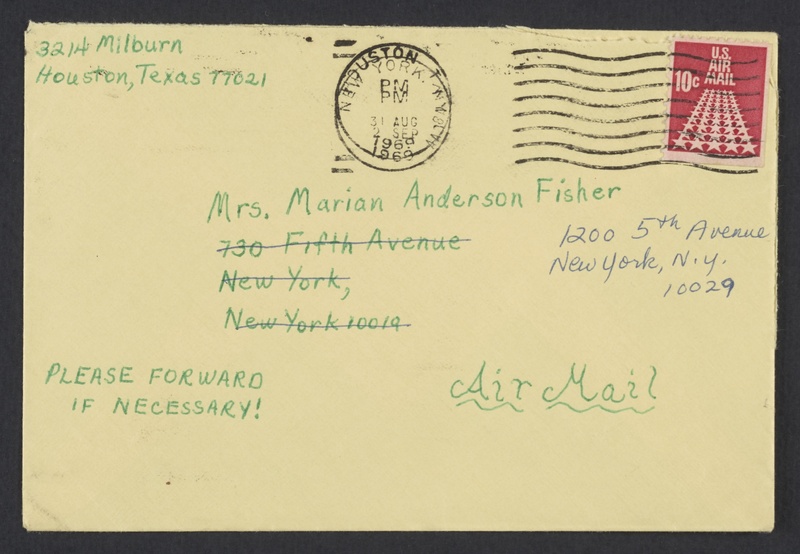 3214 Milburn
Houston, Texas 77021
HOUSTON
NEW YORK, N.Y.
PM
PM
31 AUG
2 SEP
1969
1969
U.S.
AIR
MAIL
10c
Mrs. Marian Anderson Fisher
730 Fifth Avenue
New York,
New York 10019
1200 5th Avenue
New York, N.Y.
10029
PLEASE FORWARD
IF NECESSARY!
Air Mail